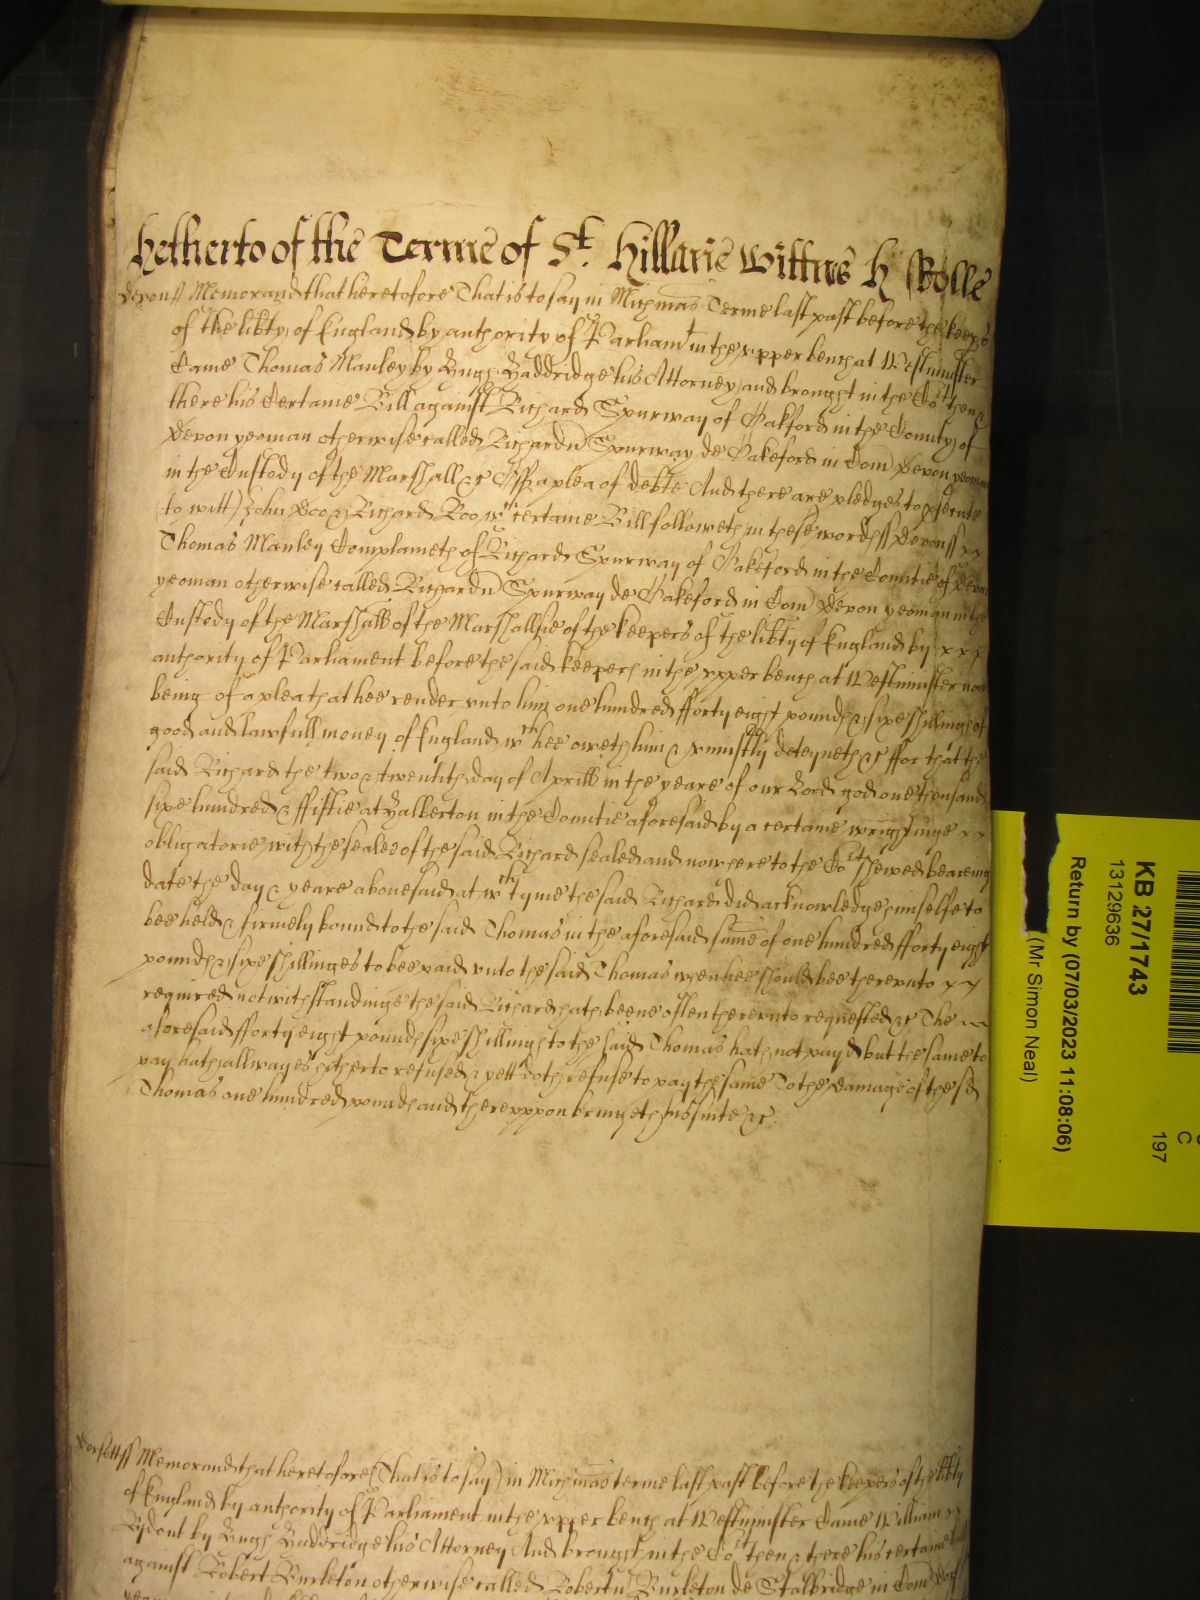 Hetherto of the Terme of St. Hillarie Wittnes H Rolle
Devon ss Memorand that heretofore That is to say in Michmas Terme last past before the keeps
of the libty of England by authority of Parliamt in the upper bench at Westminster
Came Thomas Manley by Hugh Baddridge his Attorney and brought in the Cot then &
there his Certaine Bill against Richard Spurway of Oakford in the County of
Devon yeoman otherwise called Richard Spurway de Oakeford in Com Devon yeoman
in the Custody of the Marshall &c Of a plea of debte And there are pledges to psecute
to witt John Doo & Richard Roo wch certaine Bill followeth in these words ss Devon ss xx
Thomas Manley Complaineth of Richard Spurway of Oakeford in the Countie of Devon
yeoman otherwise called Richard Spurway de Oakeford in Com Devon yeoman in the
Custody of the Marshall of the Marshallsie of the keepers of the libty of England by xxx
authority of Parliament before the said keepers in the upper bench at Westminster now
being of a plea that hee render unto him one hundred fforty eight pounds & sixe shillings of
good and lawfull money of England wch hee oweth him & uniustly deteyneth &c ffor that the
said Richard the two & twentith day of Aprill in the yeare of our Lord god one thousand
sixe hundred & ffiftie at Halberton in the Countie aforesaid by a certaine wrightinge xx
obligatorie with the seale of the said Richard sealed and now here to the Cot shewed beareing
date the day & yeare abouesaid at wch tyme the said Richard did acknowledge himselfe to
bee held & firmely bound to the said Thomas in the aforesaid sume of one hundred fforty eight
pounds & sixe shillinges to bee paid unto the said Thomas when hee should bee thereunto xx
required notwithstandinge the said Richard hath beene often thereunto requested &c The
aforesaid fforty eight pounds sixe shillings to the said Thomas hath not payd but the same to
pay hath allwayes hitherto refused & yett doth refuse to pay the same To the damage of the sd
Thomas one hundred pounds and thereuppon bringeth his suite &c.
Dorsett ss Memorand that heretofore (That is to say) in Michmas terme last past before the keepers of the libty
of England by authority of Parliament in the upper bench at Westminster Came William xx
by Hugh Baddridge his Attorney And brought in the Cot then & there his certaine Bill
against Robert Burleton otherwise called Robertu Burleton de Stalbridge in Com Dors
KB 27/1743
13129636
Return by (07/03/2023 11:08:06)
(Mr Simon Neal)
C
197